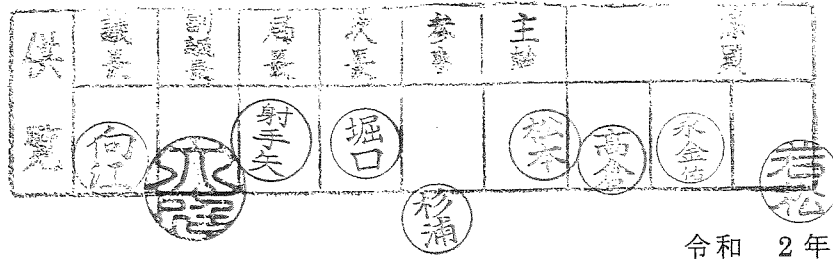 供覧
議長 副議長 局長 次長 参事 主幹 係員
向江 射手矢 堀口 松本 高倉
杉浦 若松
令和 2年